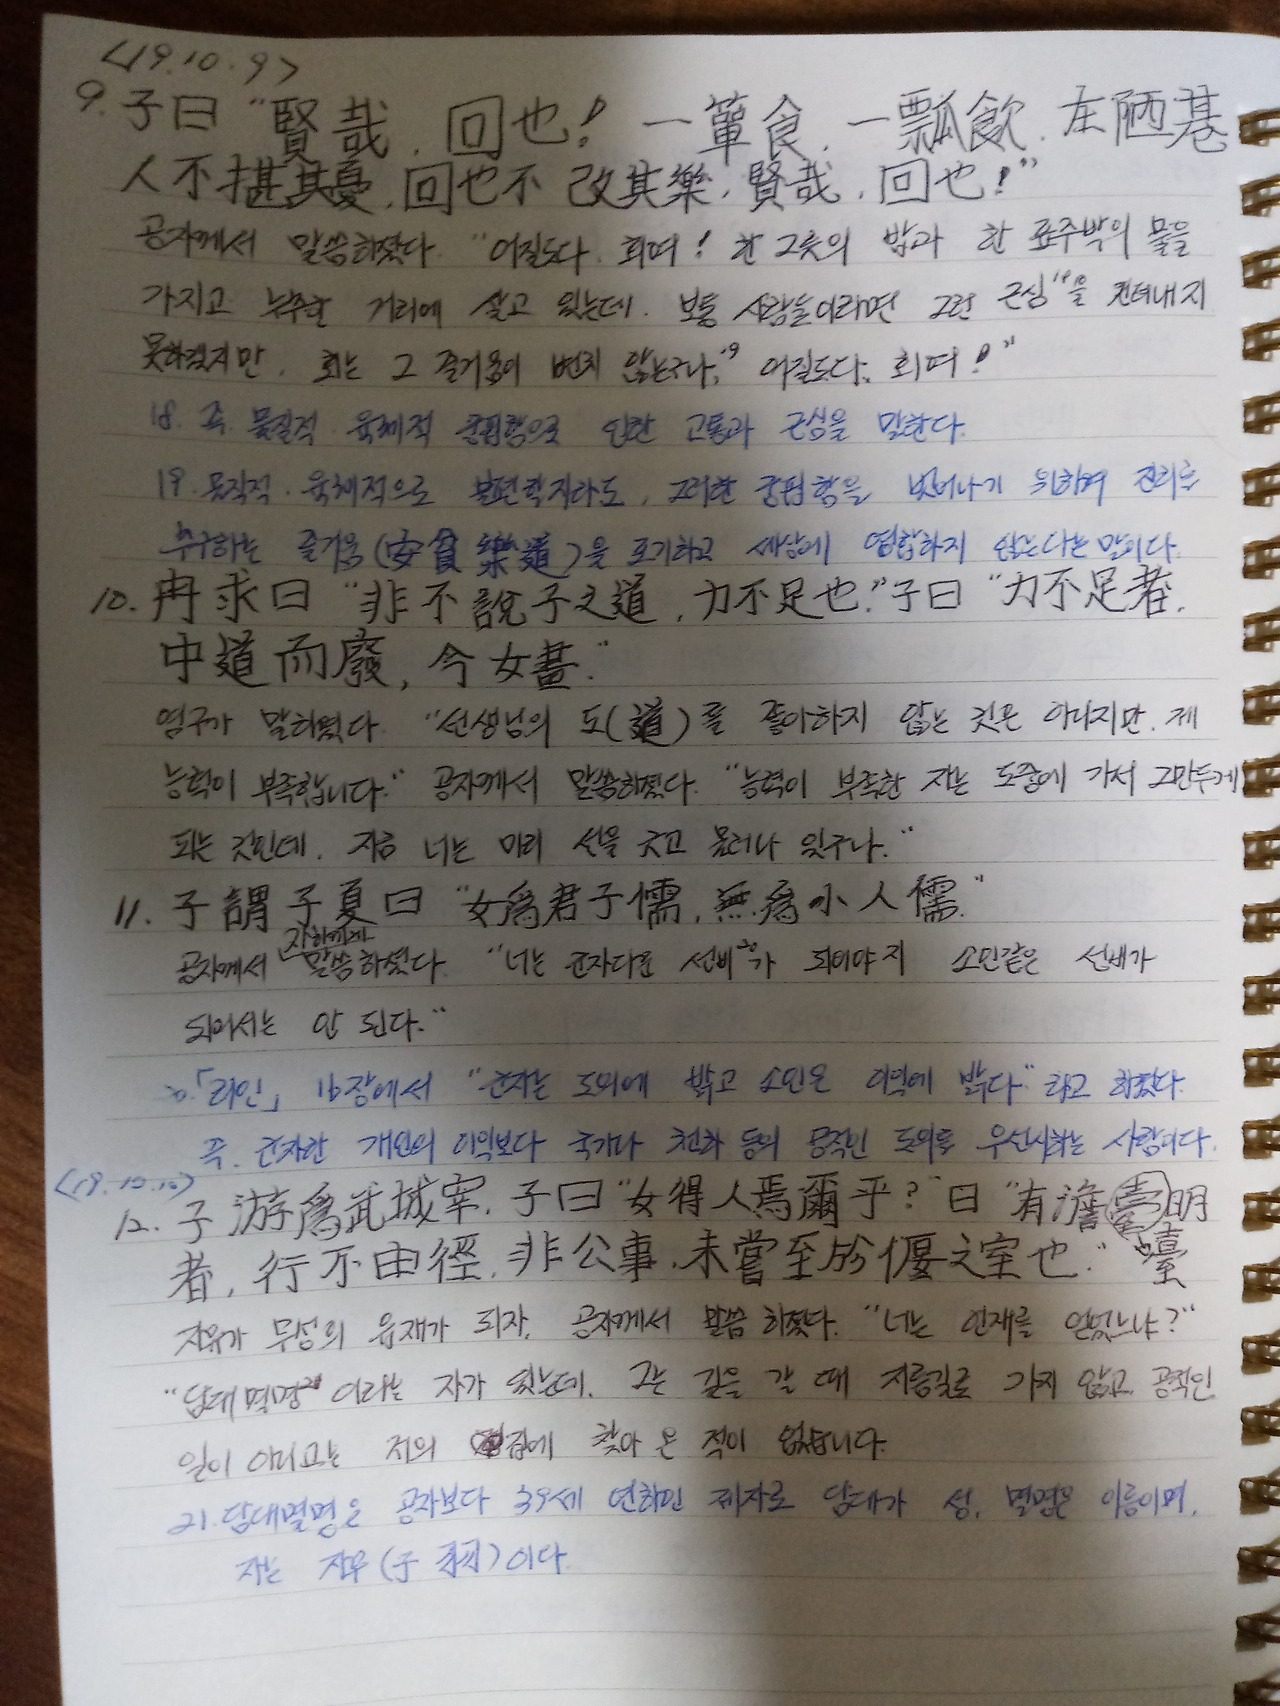 <19.10.9>
9. 子曰 "賢哉, 回也! 一簞食, 一瓢飮, 在陋巷
人不堪其憂, 回也不改其樂, 賢哉, 回也!"
공자께서 말씀하셨다. "어질도다, 회여! 한 그릇의 밥과 한 표주박의 물을
가지고 누추한 거리에 살고 있는데, 보통 사람들이라면 그런 근심18을 견뎌내지
못하겠지만, 회는 그 즐거움이 변치 않는구나.19 어질도다, 회여!"
18. 즉, 물질적·육체적 궁핍함으로 인한 고통과 근심을 말한다.
19. 물질적·육체적으로 불편할지라도, 그러한 궁핍함을 벗어나기 위하여 진리를
추구하는 즐거움(安貧樂道)을 포기하고 세상에 영합하지 않는다는 말이다.
10. 冉求曰 "非不說子之道, 力不足也." 子曰 "力不足者,
中道而廢, 今女畵."
염구가 말하였다. "선생님의 도(道)를 좋아하지 않는 것은 아니지만, 제
능력이 부족합니다." 공자께서 말씀하셨다. "능력이 부족한 자는 도중에 가서 그만두게
되는 것인데, 지금 너는 미리 선을 긋고 물러나 있구나."
11. 子謂子夏曰 "女爲君子儒, 無爲小人儒."
공자께서 자하에게 말씀하셨다. "너는 군자다운 선비20가 되어야지 소인같은 선비가
되어서는 안 된다."
20. 「리인」 16장에서 "군자는 도의에 밝고 소인은 이익에 밝다" 라고 하였다.
즉, 군자란 개인의 이익보다 국가나 천하 등의 공적인 도의를 우선시하는 사람이다.
<19.10.10>
12. 子游爲武城宰, 子曰 "女得人焉爾乎?" 曰 "有澹臺明
者, 行不由徑, 非公事, 未嘗至於偃之室也." 臺
자유가 무성의 읍재가 되자, 공자께서 말씀하셨다. "너는 인재를 얻었느냐?"
"담대멸명21이라는 자가 있는데, 그는 길을 갈 때 지름길로 가지 않고, 공적인
일이 아니고는 저의 집에 찾아 온 적이 없습니다.
21. 담대멸명은 공자보다 39세 연하인 제자로 담대가 성, 멸명은 이름이며,
자는 자우(子羽)이다.